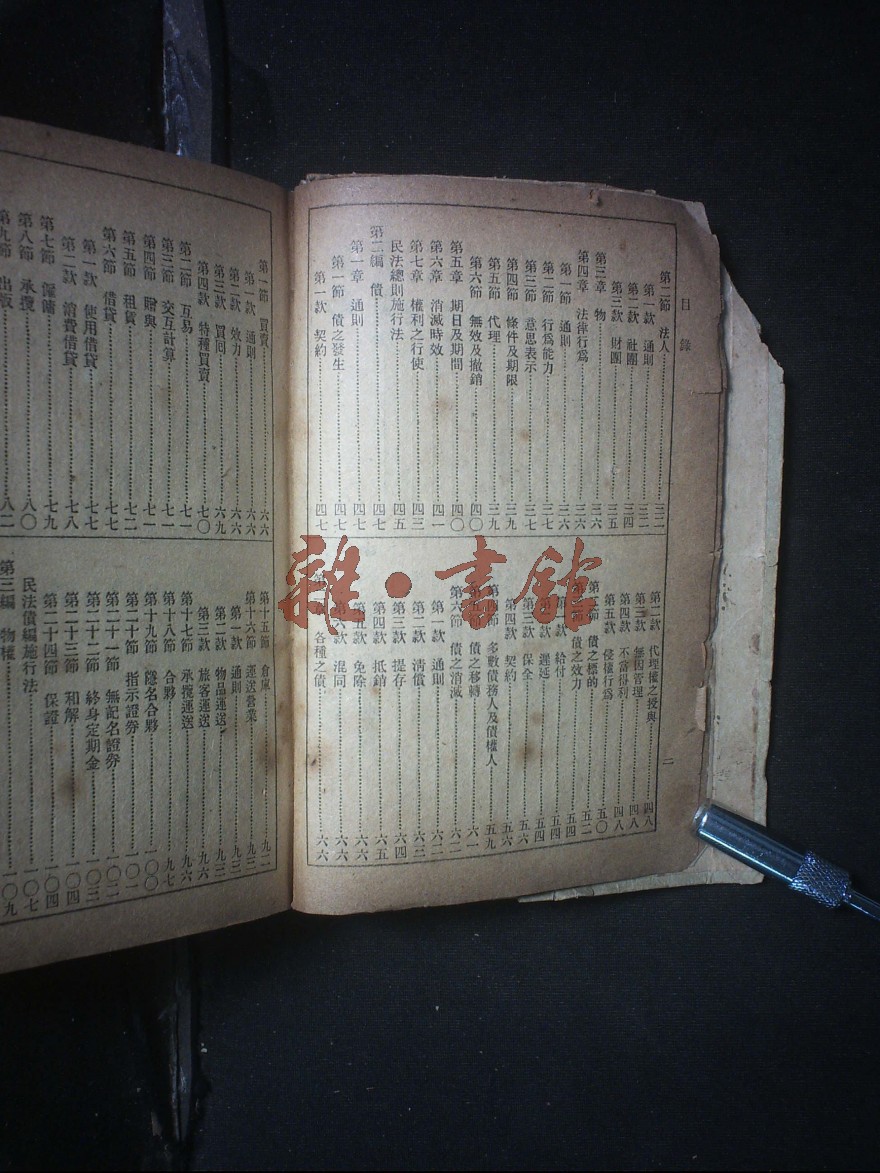 目錄
第二節 法人 三二
第一款 通則 三二
第二款 社團 三四
第三款 財團 三五
第三章 物 三六
第四章 法律行爲 三六
第一節 通則 三六
第二節 行爲能力 三七
第三節 意思表示 三七
第四節 條件及期限 三九
第五節 代理 三九
第六節 無效及撤銷 四〇
第五章 期日及期間 四〇
第六章 消滅時效 四一
第七章 權利之行使 四三
民法總則施行法 四五
第二編 債 四七
第一章 通則 四七
第一節 債之發生 四七
第一款 契約 四七
第二款 代理權之授與 四八
第三款 無因管理 四八
第四款 不當得利 四八
第五款 侵權行爲 五〇
債之標的 五二
債之效力 五四
給付 五四
遲延 五四
保全 五六
第四款 契約 五六
第四節 多數債務人及債權人 五九
第五節 債之移轉 六一
第六節 債之消滅 六二
第一款 通則 六二
第二款 清償 六三
第三款 提存 六四
第四款 抵銷 六五
第五款 免除 六六
第六款 混同 六六
各種之債 六六
二
雜·書館
第一節 買賣 六六
第一款 通則 六六
第二款 效力 六六
第三款 買回 六九
第四款 特種買賣 七〇
第二節 互易 七一
第三節 交互計算 七一
第四節 贈與 七一
第五節 租賃 七二
第六節 借貸 七七
第一款 使用借貸 七七
第二款 消費借貸 七八
第七節 僱傭 七九
第八節 承攬 八〇
第九節 出版 八二
第十五節 倉庫 九二
第十六節 運送營業 九三
第一款 通則 九三
第二款 物品運送 九三
第三款 旅客運送 九六
第十七節 承攬運送 九六
第十八節 合夥 九七
第十九節 隱名合夥 一〇〇
第二十節 指示證券 一〇一
第二十一節 無記名證券 一〇二
第二十二節 終身定期金 一〇三
第二十三節 和解 一〇四
第二十四節 保證 一〇四
民法債編施行法 一〇七
第三編 物權 一〇九